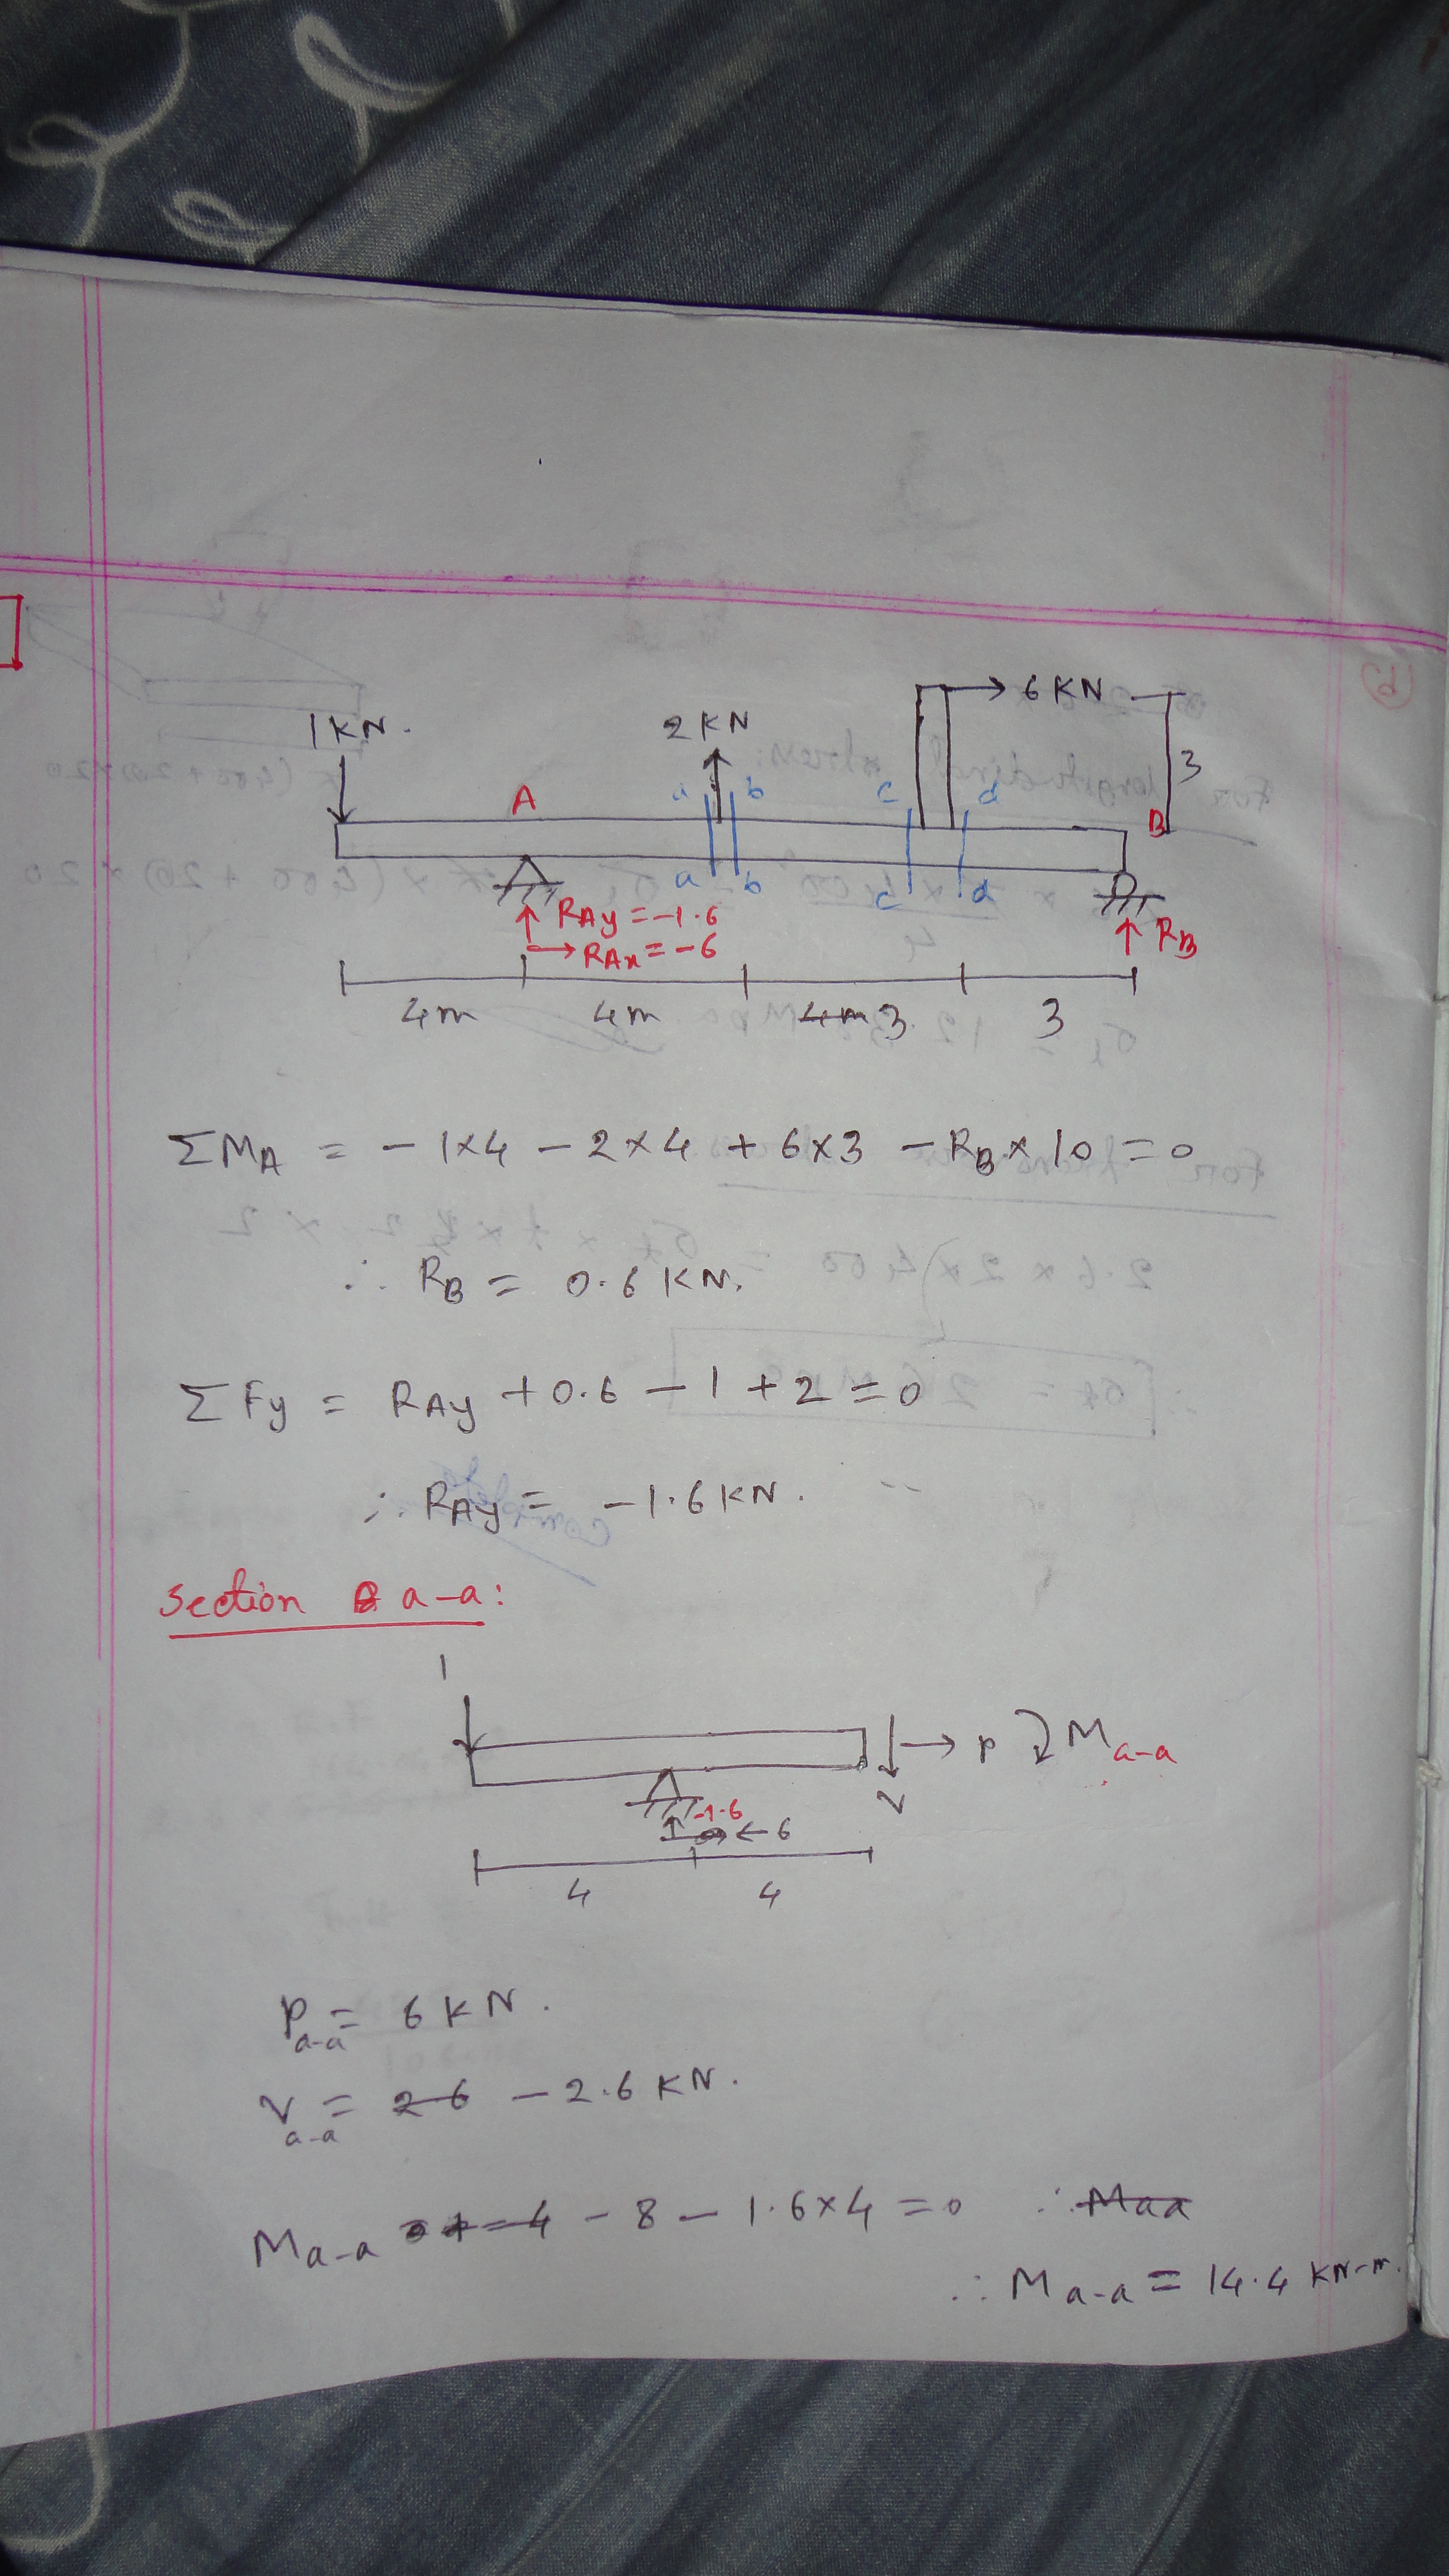 1KN.
2KN
6KN
3
A
a b
c d
B
a b
c d
RAy = -1.6
RAx = -6
RB
4m 4m 4m 3 3
ΣMA = - 1×4 - 2×4 + 6×3 - RB × 10 = 0
∴ RB = 0.6 KN.
ΣFy = RAy + 0.6 - 1 + 2 = 0
∴ RAy = -1.6KN.
Section a-a:
1
V → P Ma-a
-1.6
← 6
4 4
Pa-a = 6 KN.
Va-a = 26 - 2.6 KN.
Ma-a - 4 - 8 - 1.6×4 = 0 ∴ Maa
∴ Ma-a = 14.4 KN-m.